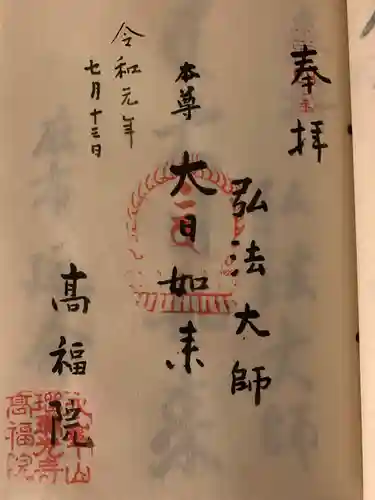 奉拝
弘法大師
本尊
大日如来
令和元年
七月十三日
高福院
高福院